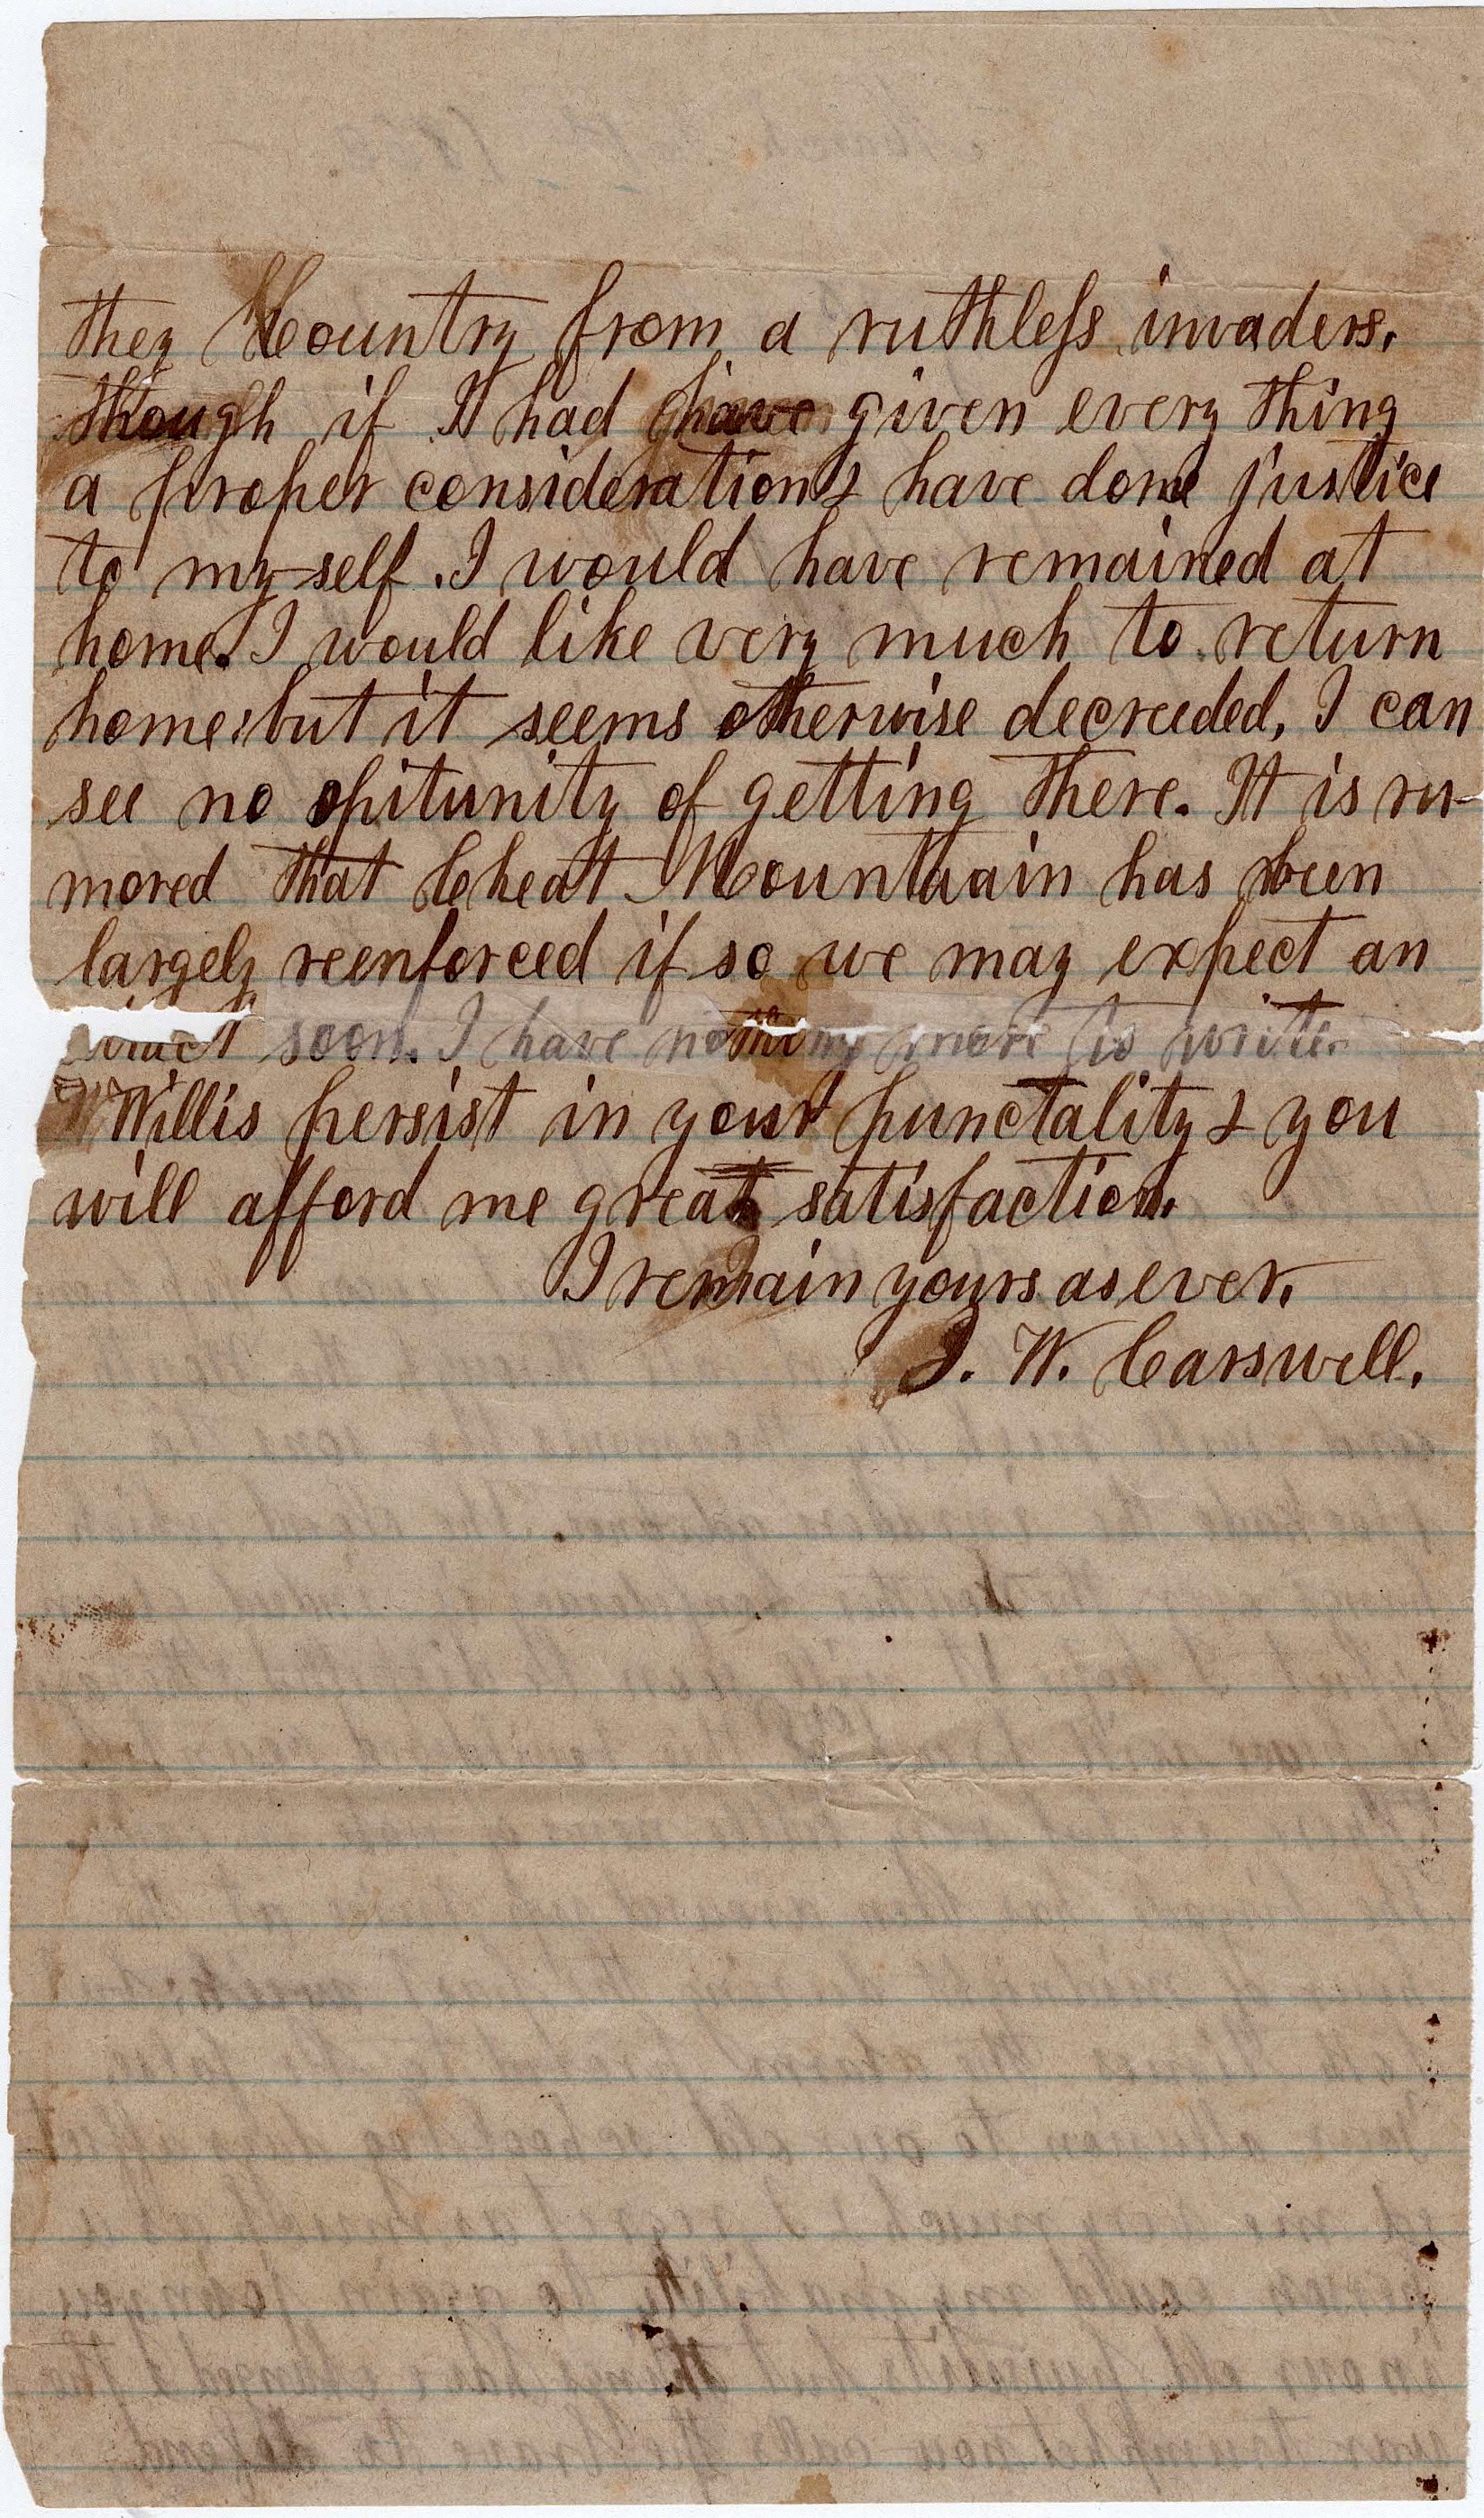 they Country from a ruthless invaders.
though if I had have given every thing
a proper consideration & have done justice
to my-self. I would have remained at
home. I would like very much to return
home, but it seems otherwise decreeded, I can
see no opitunity of getting there. It is ru-
mored that Cheat Mountaain has been
largely reenforced if so we may expect an
soon. I have nothing more to write
Willis persist in your punctality & you
will afford me great satisfaction.
I remain yours as ever.
J. W. Carswell.